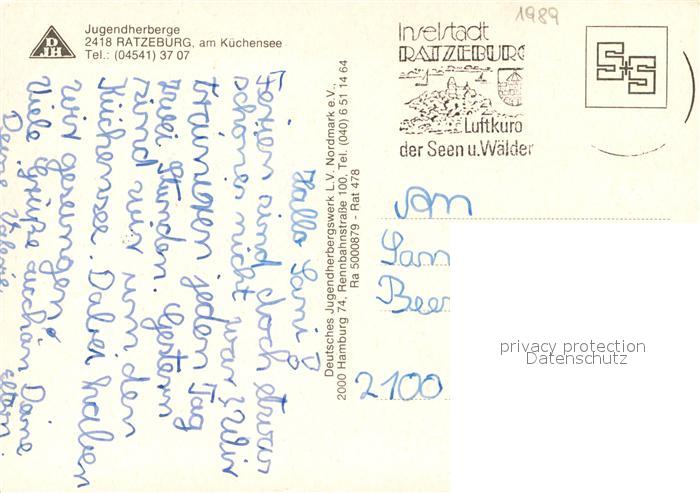 DJH
Jugendherberge
2418 RATZEBURG, am Küchensee
Tel.: (04541) 37 07
1989
Inselstadt
RATZEBURG
Luftkuro
der Seen u. Wälder
S+S
Hallo Sami
Ferien sind doch etwas
schönes nicht war? Wir
träumen jeden Tag
zwei Stunden. Gestern
sind wir um den
Küchensee. Dabei haben
wir gesungen
Viele Grüße auch an Deine
Eltern.
Deine Valerie
Deutsches Jugendherbergswerk L.V. Nordmark e.V.,
2000 Hamburg 74, Rennbahnstraße 100, Tel. (040) 6 51 14 64
Ra 5000879 - Rat 478
An
Sam
Beer
2100
privacy protection
Datenschutz